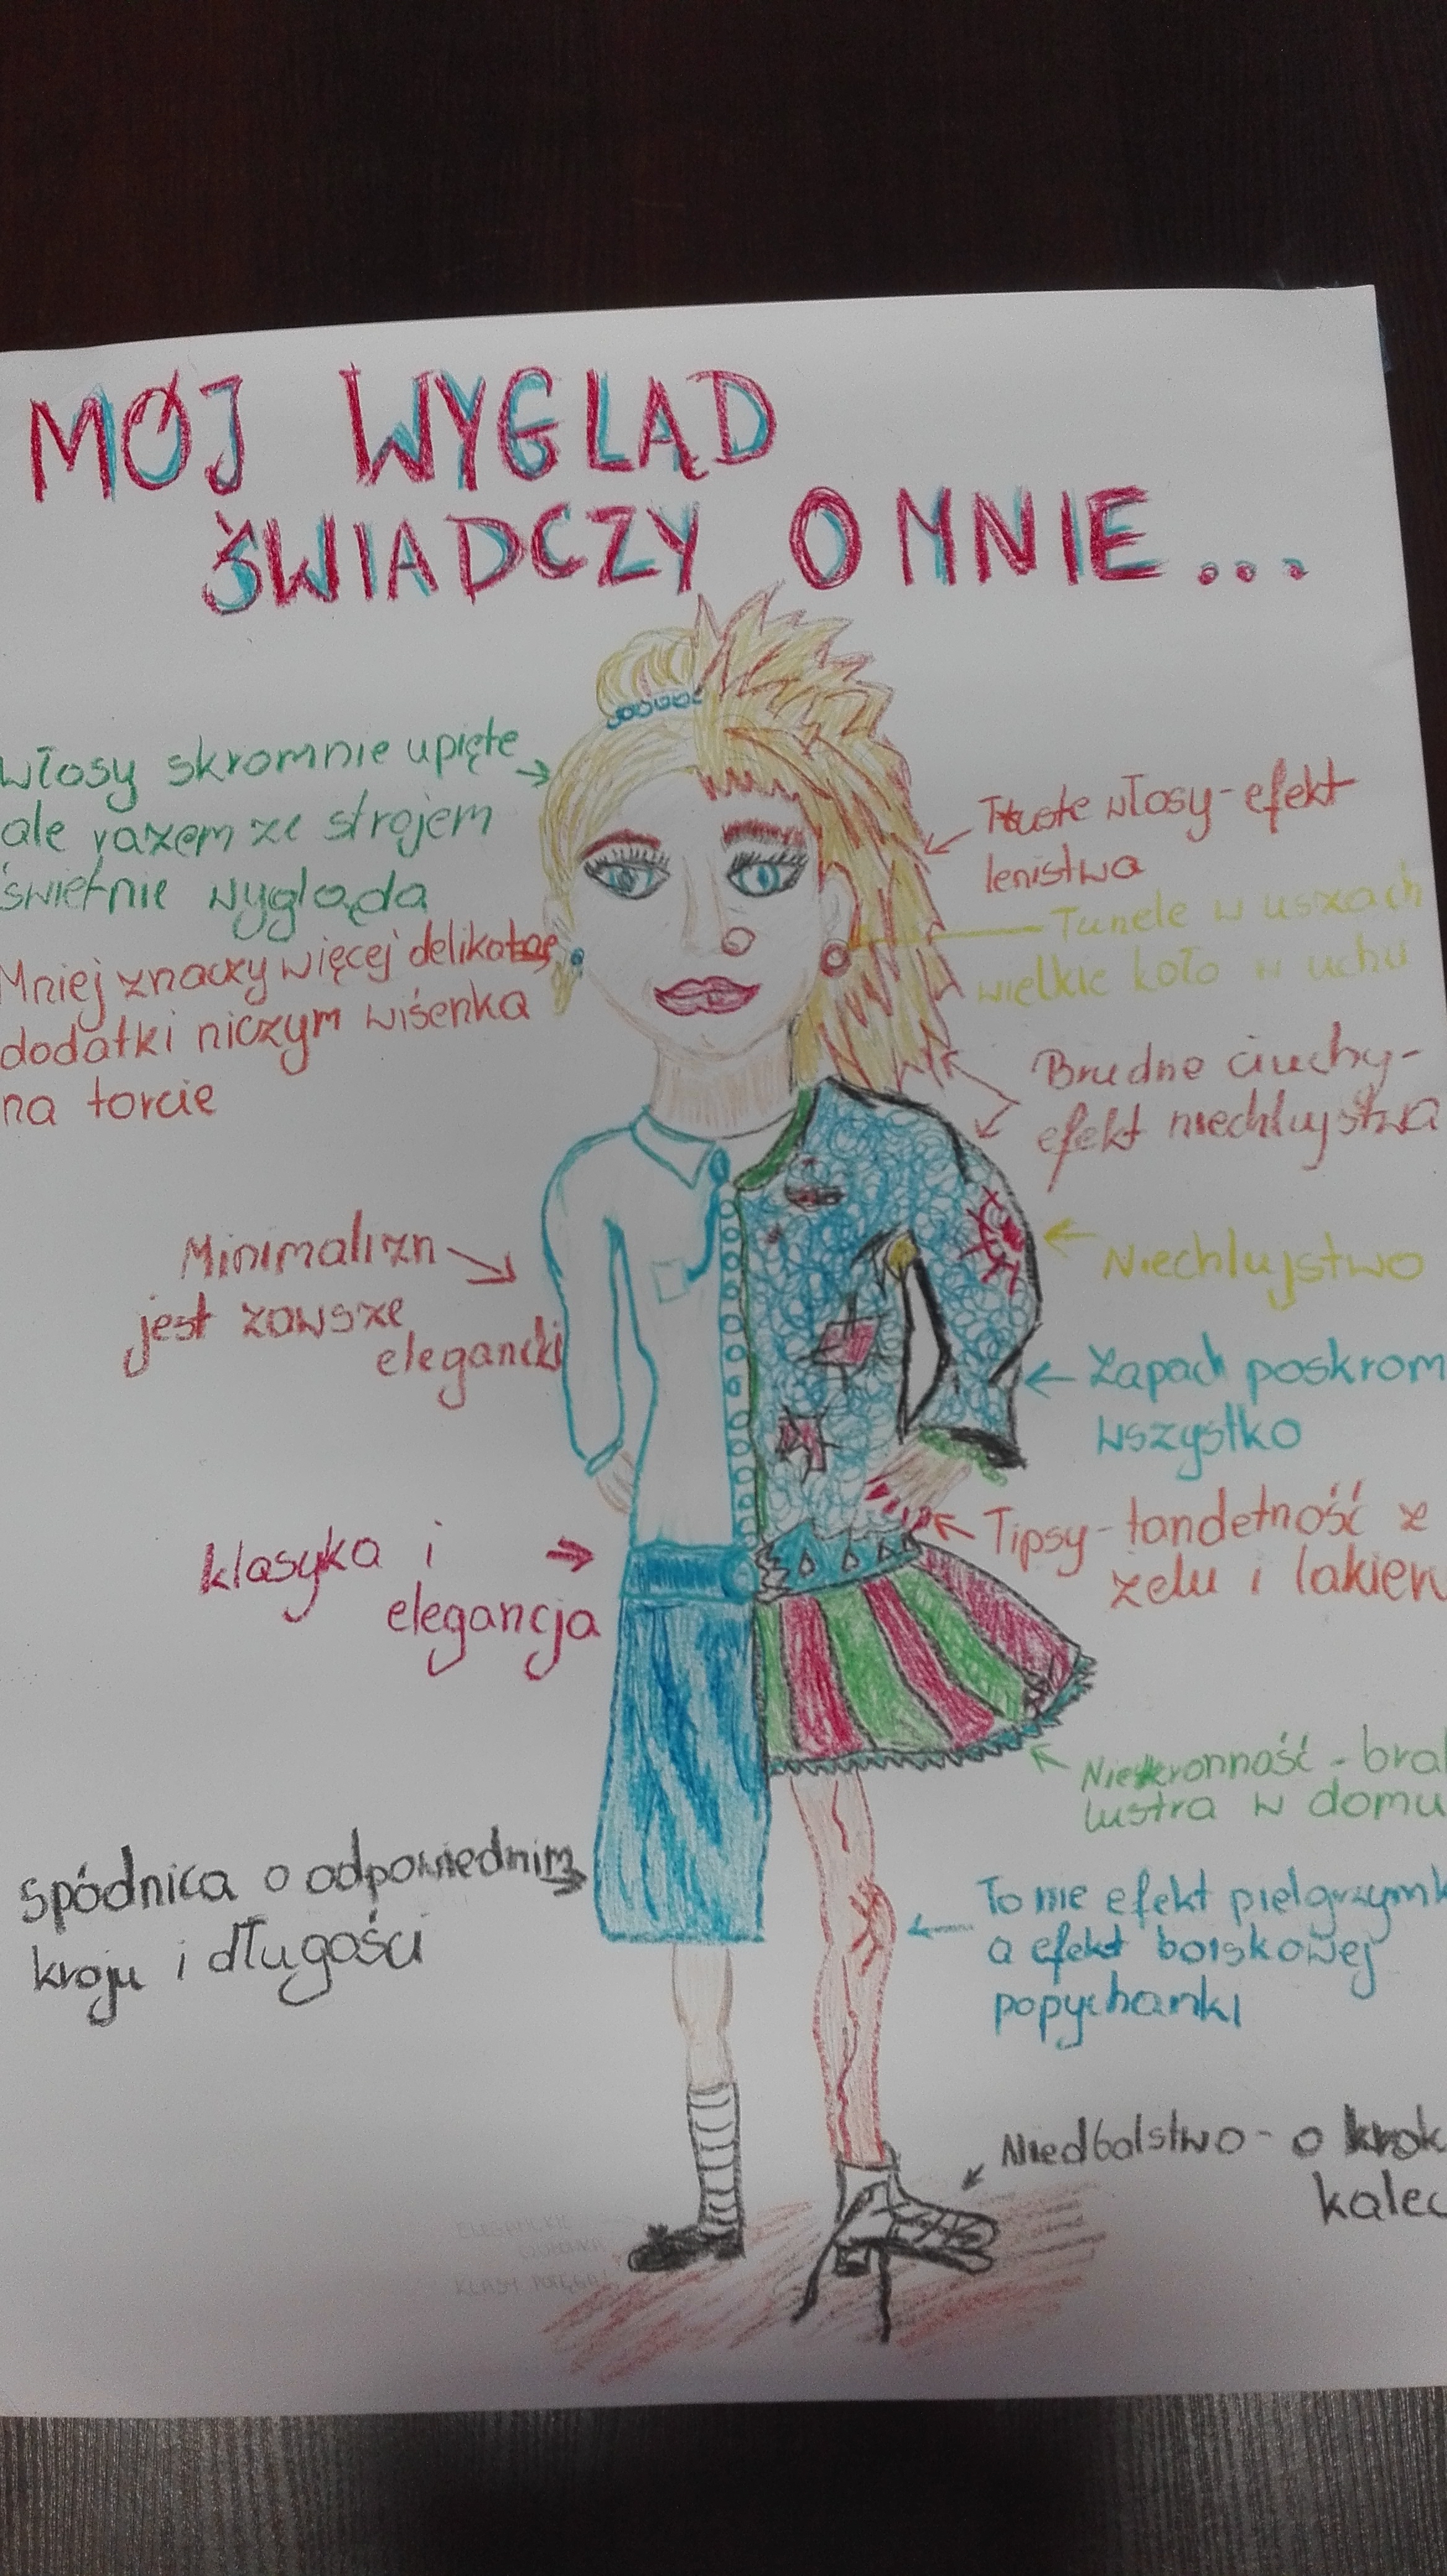 MÓJ WYGLĄD
ŚWIADCZY O MNIE...
Włosy skromnie upięte
ale razem ze strojem
świetnie wygląda
Mniej znaczy więcej delikatne
dodatki niczym wisienka
na torcie
Minimalizn
jest zawsze
elegancki
klasyka i
elegancja
spódnica o odpowiednim
kroju i długości
Tłuste włosy - efekt
lenistwa
Tunele w uszach
wielkie koło w uchu
Brudne ciuchy -
efekt niechlujstwa
Niechlujstwo
Zapach poskrom
wszystko
Tipsy - tandetność z
żelu i lakier
Nieskromność - bra
lustra w domu
To nie efekt pielgrzymk
a efekt boiskowej
popychanki
Niedbalstwo - o krok
kalec
ELEGANCKIE